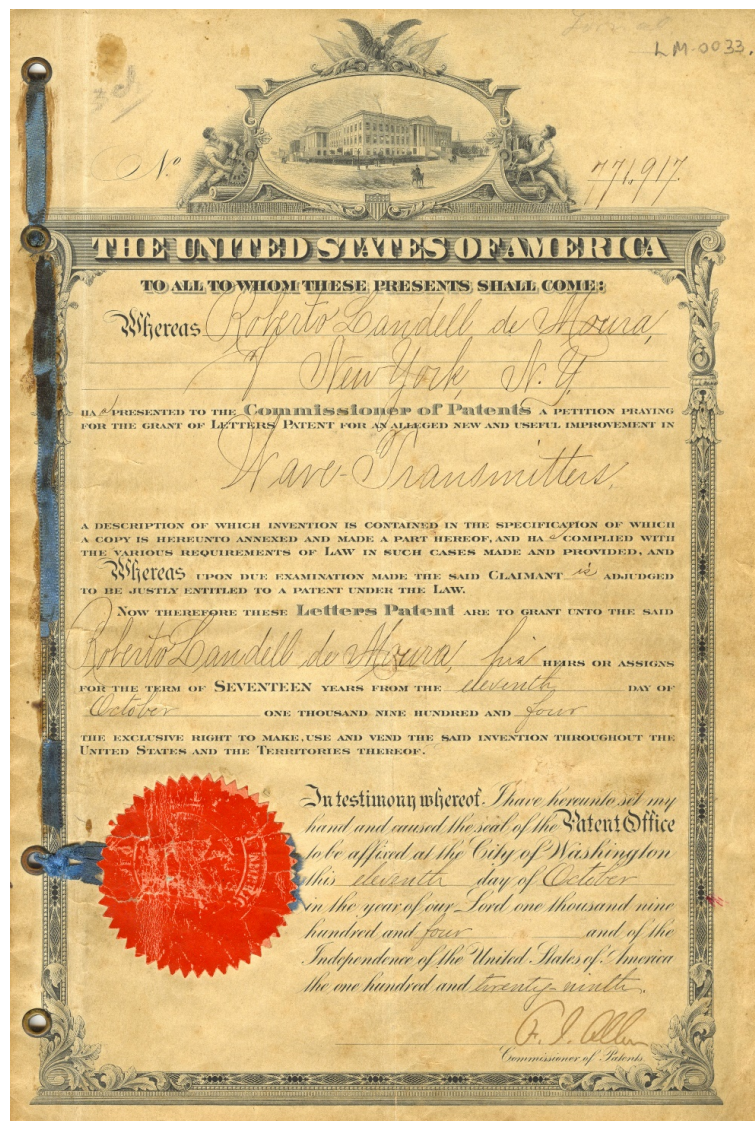 LM-0033.
No 771,917.
THE UNITED STATES OF AMERICA
TO ALL TO WHOM THESE PRESENTS SHALL COME:
Whereas Roberto Landell de Moura,
of
New York, N.Y.
HAs PRESENTED TO THE Commissioner of Patents A PETITION PRAYING
FOR THE GRANT OF LETTERS PATENT FOR AN ALLEGED NEW AND USEFUL IMPROVEMENT IN
Wave-Transmitters,
A DESCRIPTION OF WHICH INVENTION IS CONTAINED IN THE SPECIFICATION OF WHICH
A COPY IS HEREUNTO ANNEXED AND MADE A PART HEREOF, AND HAs COMPLIED WITH
THE VARIOUS REQUIREMENTS OF LAW IN SUCH CASES MADE AND PROVIDED, AND
Whereas UPON DUE EXAMINATION MADE THE SAID CLAIMANT is ADJUDGED
TO BE JUSTLY ENTITLED TO A PATENT UNDER THE LAW.
NOW THEREFORE THESE Letters Patent ARE TO GRANT UNTO THE SAID
Roberto Landell de Moura, his HEIRS OR ASSIGNS
FOR THE TERM OF SEVENTEEN YEARS FROM THE eleventh DAY OF
October ONE THOUSAND NINE HUNDRED AND four
THE EXCLUSIVE RIGHT TO MAKE, USE AND VEND THE SAID INVENTION THROUGHOUT THE
UNITED STATES AND THE TERRITORIES THEREOF.
In testimony whereof I have hereunto set my
hand and caused the seal of the Patent Office
to be affixed at the City of Washington
this eleventh day of October
in the year of our Lord one thousand nine
hundred and four and of the
Independence of the United States of America
the one hundred and twenty-ninth.
F. I. Allen
Commissioner of Patents